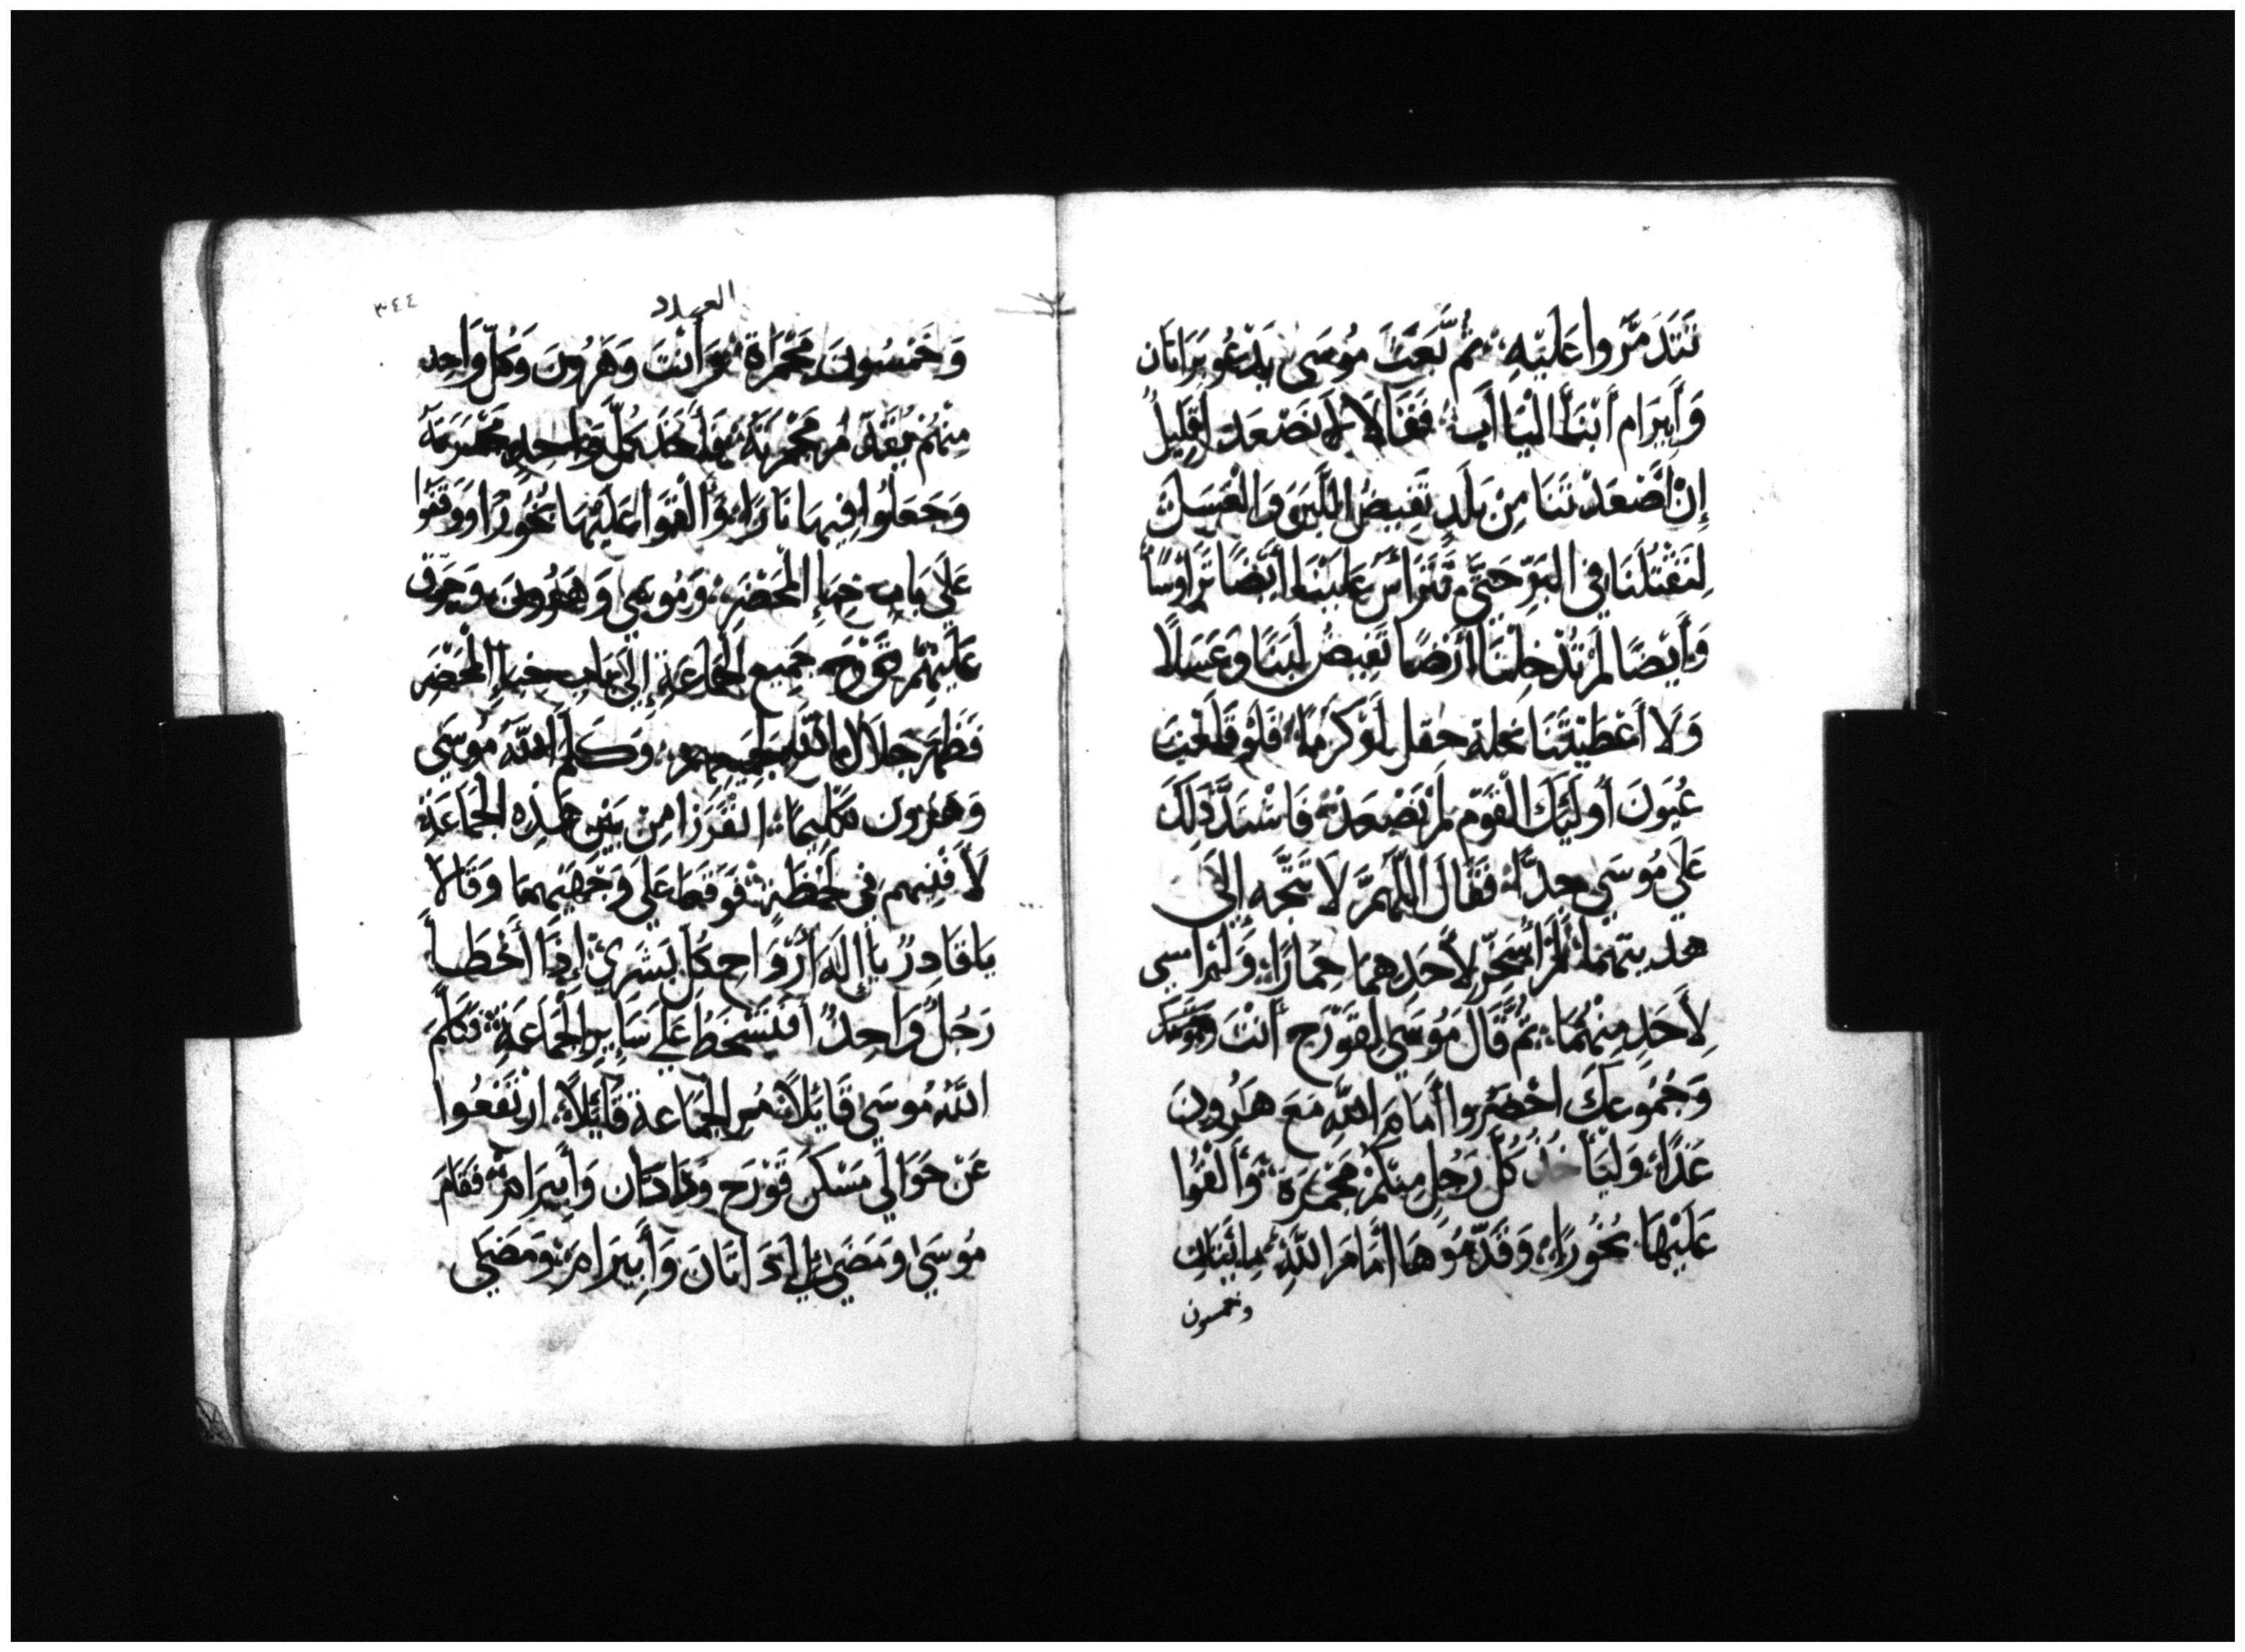 تَتَذَمَّرُوا عَلَيْهِ ثُمَّ بَعَثَ مُوسَى يَدْعُو بِدَاثَان
وَأَبِيرَام أَبْنَاْ الْيَاأَب فَقَالَا لَا نَصْعَد أَقَلِيلٌ
إِنْ أَصْعَدْتَنَا مِن بَلَدٍ تَفِيضُ اللَّبَن وَالْعَسَل
لِتَقْتُلَنَا فِي البَرِّ حَتَّى تَتَرَأَّسَ عَلَيْنَا أَيْضًا تَرَاوُسًا
وَأَيْضًا لَمْ تُدْخِلْنَا أَرْضًا تَفِيضُ لَبَنًا وَعَسَلًا
وَلَا أَعْطَيْتَنَا نحلة حقل أَوْ كَرْمًا فَلَوْ قَلَعْتَ
عُيُونَ أُولَئِكَ الْقَوْمِ لَمْ نَصْعَدْ فَاشْتَدَّ ذَلِكَ
عَلَى مُوسَى جِدًّا فَقَالَ اللَّهُمَّ لَا تَتَّجِه إِلَى
هديتهما لَمْ أُسَخِّر لِأَحَدِهِمَا حِمَارًا وَلَمْ اسي
لِأَحَدٍ مِنْهُمَا ثُمَّ قَالَ مُوسَى لِقَوْرَح أَنْتَ
وَجُمُوعكَ احْضَرُوا أَمَامَ اللَّهِ مَعَ هَرُونَ
غَدًا وَلْيَأْخُذ كُلُّ رَجُلٍ مِنْكُمْ مَجْمَرَة وَأَلْقُوا
عَلَيْهَا بُخُورًا وَقَدِّمُوهَا أَمَامَ اللَّهِ مِائَتَانِ
وخمسون
٣٤٤
العدد
وَخَمْسُونَ مَجْمَرَة وَأَنْتَ وَهَرُونَ وَكُلُّ وَاحِد
مِنْهُمْ يُقَدِّم مَجْمَرَتَهُ فَأَخَذَ كُلُّ وَاحِدٍ مَجْمَرَتَهُ
وَجَعَلُوا فِيهَا نَارًا وَأَلْقَوا عَلَيْهَا بُخُورًا وَوَقَفُوا
عَلَى بَابِ خِبَاءِ الْمَحْضَرِ وَمُوسَى وَهَرُونَ وَجَوَّقَ
عَلَيْهِمْ قَوْرَح جَمِيعَ الْجَمَاعَةِ إِلَى بَابِ خِبَاءِ الْمَحْضَرِ
فَظَهَرَ جَلَالُ اللَّهِ لجميعهم وَكَلَّمَ اللَّهُ مُوسَى
وَهَرُون تَكْلِيمًا انْفَرِزَا مِنْ بَيْنِ هَذِهِ الْجَمَاعَةِ
لَأُفْنِيهم فِي لَحْظَةٍ فَوَقَعَا عَلَى وَجْهَيْهِمَا وَقَالَا
يَا قَادِرُ يَا إِلَهَ أَرْوَاحِ كُلِّ بَشَرِيٍّ إِذَا أَخْطَأ
رَجُلٌ وَاحِدٌ أَفَتَسْخَطُ عَلَى سَايِرِ الْجَمَاعَةِ فَكَلَّمَ
اللَّهُ مُوسَى قَائِلًا مُرِ الْجَمَاعَة قَائِلًا ارْتَفَعُوا
عَنْ حَوَالَي مَسْكَن قَوْرَح وَدَاثَان وَأَبِيرَامَ فَقَامَ
مُوسَى وَمَضَى إِلَى دَاثَان وَأَبِيرَامَ وَمَضَى